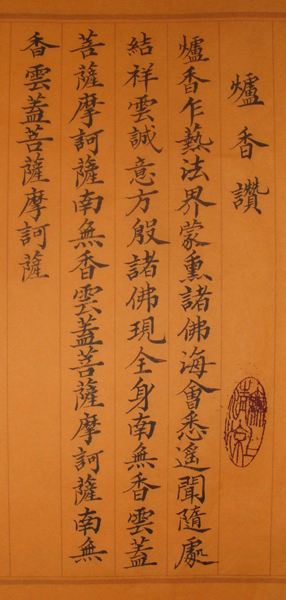 爐香讚
爐香乍爇法界蒙熏諸佛海會悉遙聞隨處
結祥雲誠意方殷諸佛現全身南無香雲蓋
菩薩摩訶薩南無香雲蓋菩薩摩訶薩南無
香雲蓋菩薩摩訶薩